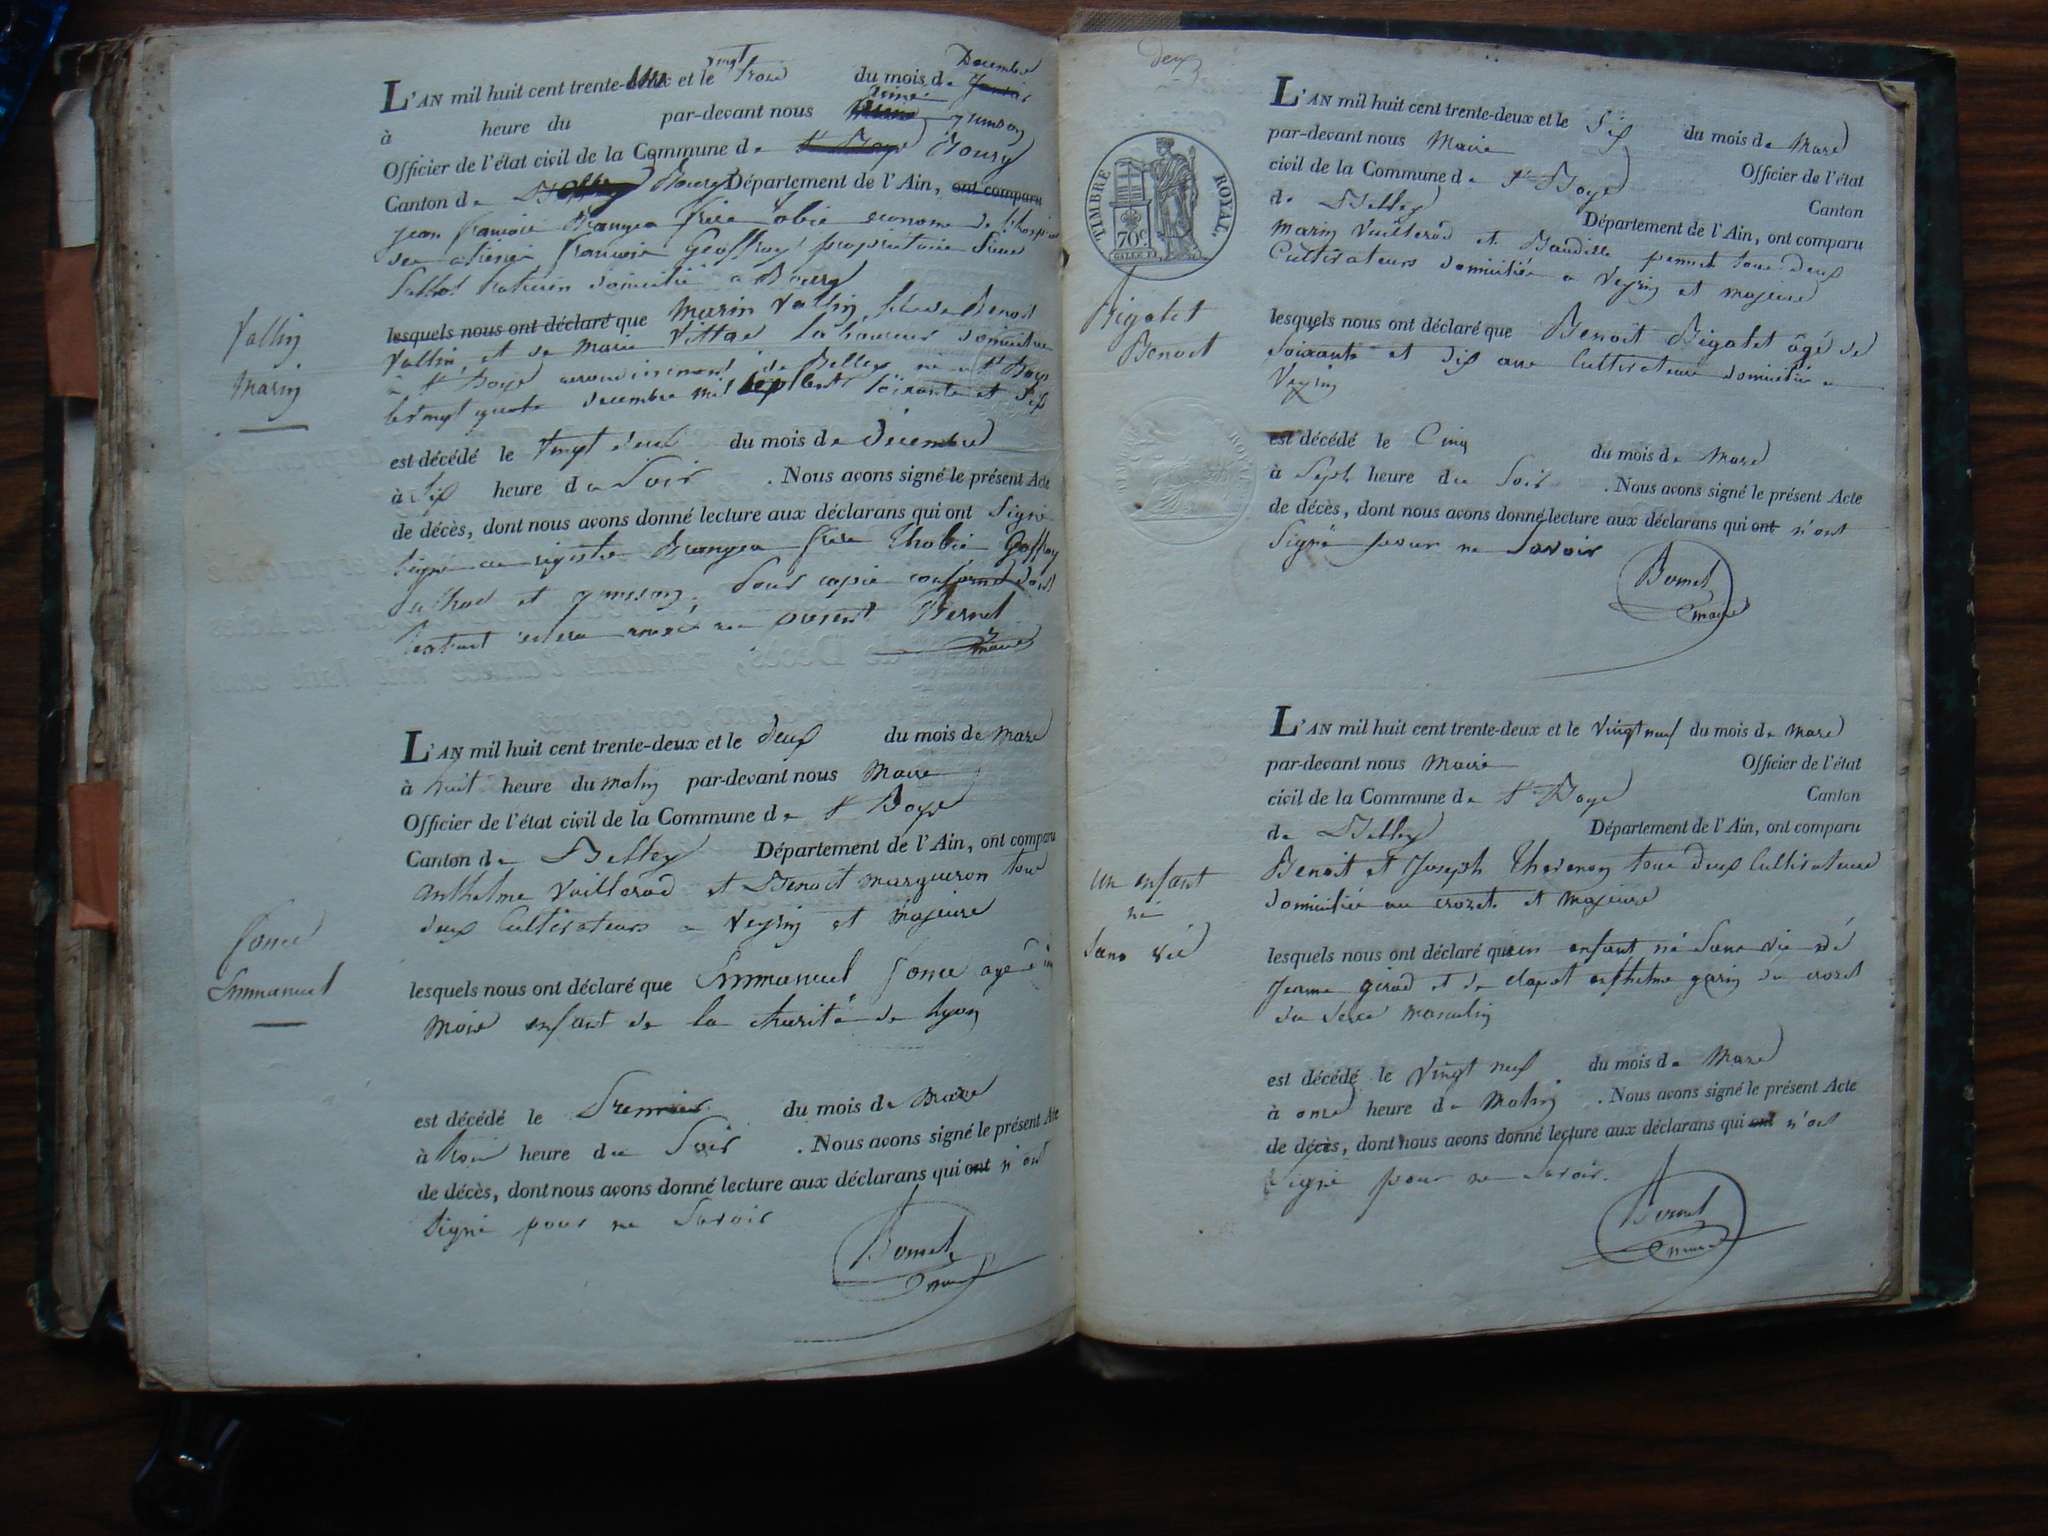 L'AN mil huit cent trente-deux et le vingt trois du mois de Decembre
à heure du par-devant nous
Officier de l'état civil de la Commune de St Boys Bourg
Canton de Belley Bourg Département de l'Ain, ont comparu
jean francois frere tobie econome de l'hospice
francois Geoffroy propriétaire
domicilié a Bourg
Vallin
Marin
lesquels nous ont déclaré que Marin Vallin fils de Benoit
Vallin et de Marie Vittod laboureur domicilié
a St Boys arrondissement de Belley né a St Boys
le vingt quatre decembre mil sept cent soixante et dix
est décédé le vingt deux du mois de decembre
à six heure du Soir . Nous avons signé le présent Acte
de décès, dont nous avons donné lecture aux déclarans qui ont signé
Signé au registre frere thobie Goffroy
et pour copie conforme dont
l'extrait sera annexé au present Bornet
maire
L'AN mil huit cent trente-deux et le deux du mois de mars
à huit heure du matin par-devant nous Maire
Officier de l'état civil de la Commune de St Boys
Canton de Belley Département de l'Ain, ont comparu
anthelme Vuillerod et Benoit margueron tous
deux Cultivateurs a Veyrin et majeurs
Emmanuel
lesquels nous ont déclaré que Emmanuel agé de
mois enfant de la charité de Lyon
est décédé le Premier du mois de Mars
à trois heure du Soir . Nous avons signé le présent Acte
de décès, dont nous avons donné lecture aux déclarans qui ont n'ont
signé pour ne Savoir
Bornet
maire
deux
TIMBRE ROYAL.
70c
L'AN mil huit cent trente-deux et le Six du mois de Mars
par-devant nous Maire Officier de l'état
civil de la Commune de St Boys Canton
de Belley Département de l'Ain, ont comparu
Marin Vuillerod et Baudille pernet tous deux
Cultivateurs domiciliés a Veyrin et majeurs
Bigolet
Benoit
lesquels nous ont déclaré que Benoit Bigolet âgé de
soixante et dix ans Cultivateur domicilié a
Veyrin
est décédé le Cinq du mois de Mars
à Sept heure du Soir . Nous avons signé le présent Acte
de décès, dont nous avons donné lecture aux déclarans qui ont n'ont
Signé pour ne Savoir
Bornet
maire
L'AN mil huit cent trente-deux et le Vingt neuf du mois de mars
par-devant nous Maire Officier de l'état
civil de la Commune de St Boys Canton
de Belley Département de l'Ain, ont comparu
Benoit et Joseph Thevenon tous deux Cultivateurs
domiciliés au crozet et majeurs
un enfant
né
Sans vie
lesquels nous ont déclaré qu'un enfant né Sans vie né
Jeanne girod et de anthelme garin du crozet
du Sexe masculin
est décédé le Vingt neuf du mois de Mars
à onze heure du Matin . Nous avons signé le présent Acte
de décès, dont nous avons donné lecture aux déclarans qui ont n'ont
signé pour ne Savoir.
Bornet
maire